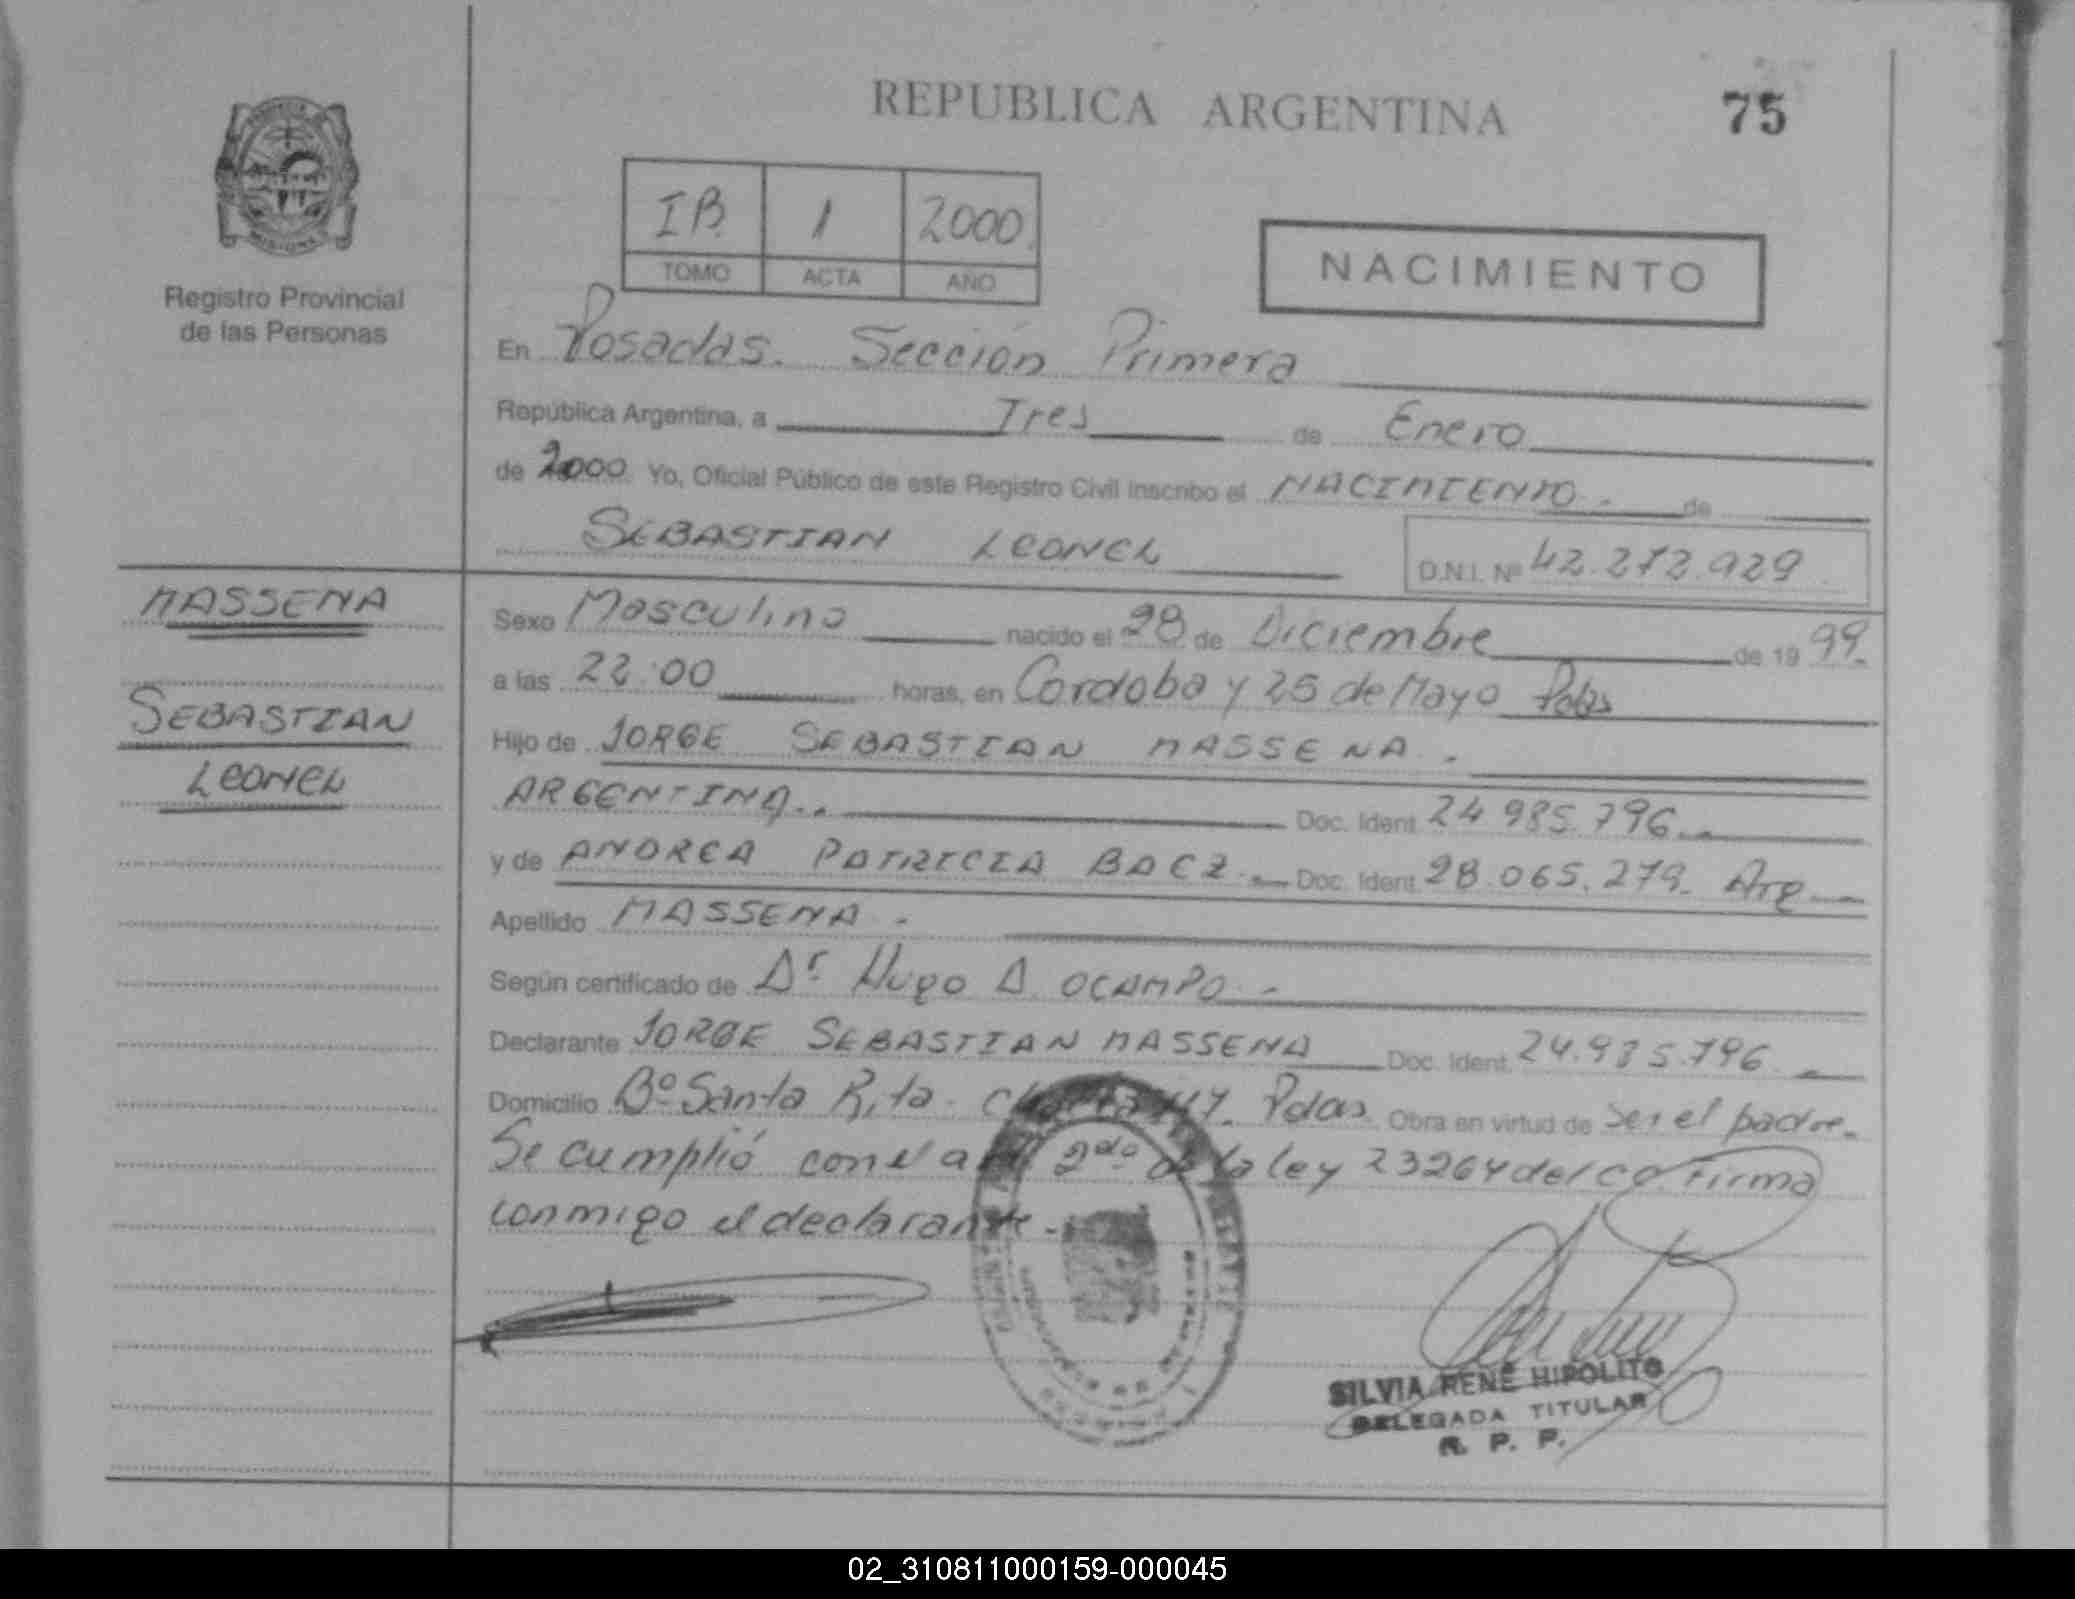 REPUBLICA ARGENTINA
75
IB 1 2000
TOMO ACTA AÑO
NACIMIENTO
Registro Provincial
de las Personas
En Posadas. Sección Primera
República Argentina, a Tres de Enero
de 2000 Yo, Oficial Público de este Registro Civil inscribo el NACIMIENTO. de
SEBASTIAN LEONEL
D.N.I. Nº 42.272.929
MASSENA
SEBASTIAN
LEONEL
Sexo Masculino nacido el 28 de Diciembre de 19 99.
a las 22:00 horas, en Cordoba y 25 de Mayo Pdas
Hijo de JORGE SEBASTIAN MASSENA.
ARGENTINA.. Doc. Ident. 24.985.796.
y de ANDREA PATRICIA BAEZ. Doc. Ident. 28.065.279. Arg
Apellido MASSENA.
Según certificado de Dr Hugo D. OCAMPO.
Declarante JORGE SEBASTIAN MASSENA Doc. Ident. 24.985.796.
Domicilio Bº Santa Rita. Pdas. Obra en virtud de ser el padre.
Se cumplió con el a 2do de la ley 23264 del cc. Firma
conmigo el declarante.
SILVIA RENÉ HIPOLITO
DELEGADA TITULAR
R. P. P.
02_310811000159-000045